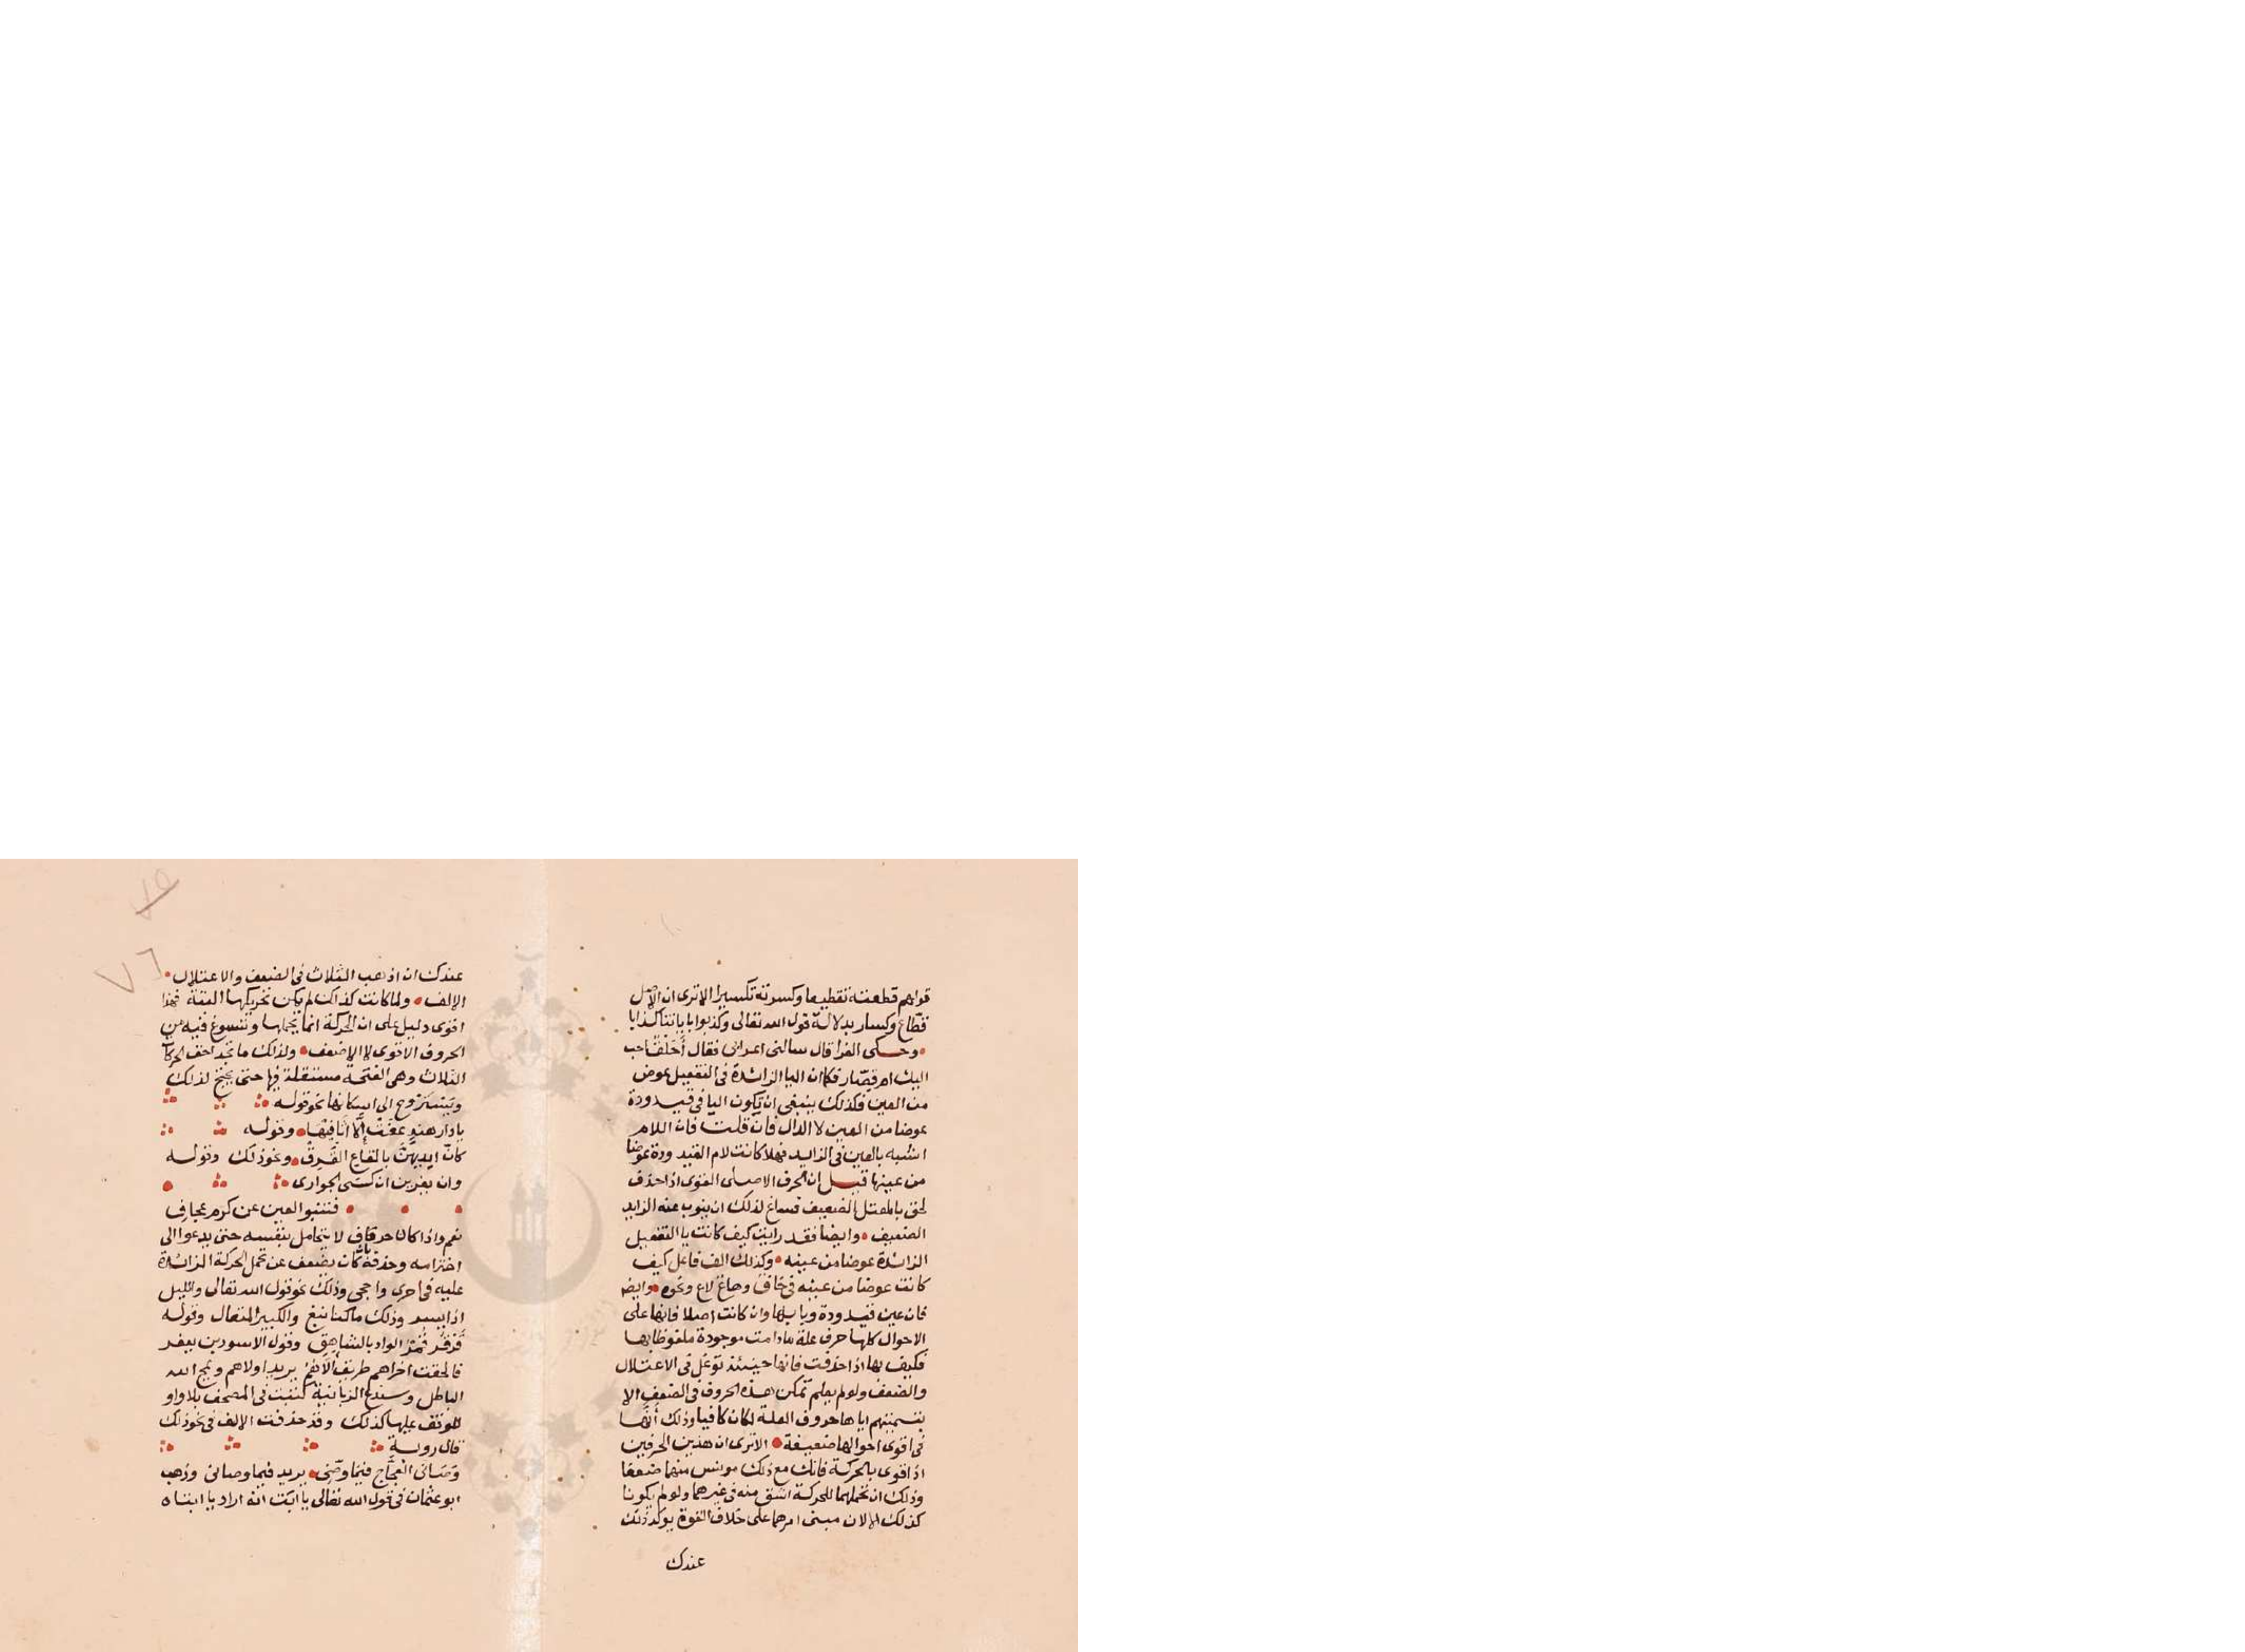 قولهم قطعته تقطيعا وكسرته تكسيرا الا ترى ان الاصل
قطاع وكسار بدلالة قول الله تعالى وكذبوا باياتنا كذابا
وحكى الفرا قال سالنى اعرابى فقال أحلق احب
اليك ام قصار فكما ان اليا الزائدة فى التفعيل عوض
من العين فكذلك ينبغى ان تكون اليا فى قيدودة
عوضا من العين لا الدال فان قلت فان اللام
اشبه بالعين فى الزايد فهلا كانت لام القيدودة عوضا
من عينها قيل ان الحرف الاصلى القوى اذا حذف
لحق بالمعتل الضعيف فساغ لذلك ان ينوب عنه الزايد
الضعيف وايضا فقد رايت كيف كانت يا التفعيل
الزائدة عوضا من عينه وكذلك الف فاعل كيف
كانت عوضا من عينه فى خاف وهاع لاع ونحوه وايضا
فان عين قيدودة وبابها وان كانت اصلا فانها على
الاحوال كلها حرف علة ما دامت موجودة ملفوظا بها
فكيف بها اذا حذفت فانها حينئذ توغل فى الاعتلال
والضعف ولو لم يعلم تمكن هذه الحروف فى الضعف الا
بتسميتهم اياها حروف العلة لكان كافيا وذلك أنها
فى اقوى احوالها ضعيفة الا ترى ان هذين الحرفين
اذا قوى بالحركة فانك مع ذلك مونس منهما ضعفا
وذلك ان تحملهما للحركة اشق منه فى غيرهما ولو لم يكونا
كذلك الا لان مبنى امرهما على خلاف القوة يوكد ذلك
عندك
عندك ان اذهب الثلاث فى الضعف والاعتلال
الالف ولما كانت كذلك لم يكن تحريكها البتة فهذا
اقوى دليل على ان الحركة انما يحملها وتسوغ فيه من
الحروف الاقوى لا الاضعف ولذلك ما تجد اخف الحركات
الثلاث وهى الفتحة مستثقلة فيها حتى يجنح لذلك
ويستروح الى اسكانها نحو قوله
يا دار هند عفت إلا أثافيها وقوله
كان ايديهن بالقاع القرق ونحو ذلك وقوله
وان يعرين ان كسى الجوارى
فتنبو العين عن كرم عجاف
نعم واذا كان حرفا لا يتحامل بنفسه حتى يدعوا الى
اخترامه وحذفه كان يضعف عن تحمل الحركة الزائدة
عليه فيه احرى واحجى وذلك نحو قول الله تعالى والليل
اذا يسر وذلك ما كنا نبغ والكبير المتعال وقوله
قرقر قمر الواد بالشاهق وقول الاسود بن يعفر
فالحقت اخراهم طريق ألاهم يريد اولاهم ويمح الله
الباطل وسندع الزبانية كتبت فى المصحف بلا واو
للوقف عليها كذلك وقد حذفت الالف فى نحو ذلك
قال روبة
وصانى العجاج فيما وصنى يريد فيما وصانى وذهب
ابو عثمان فى قول الله تعالى يا ابت انه اراد يا ابتاه